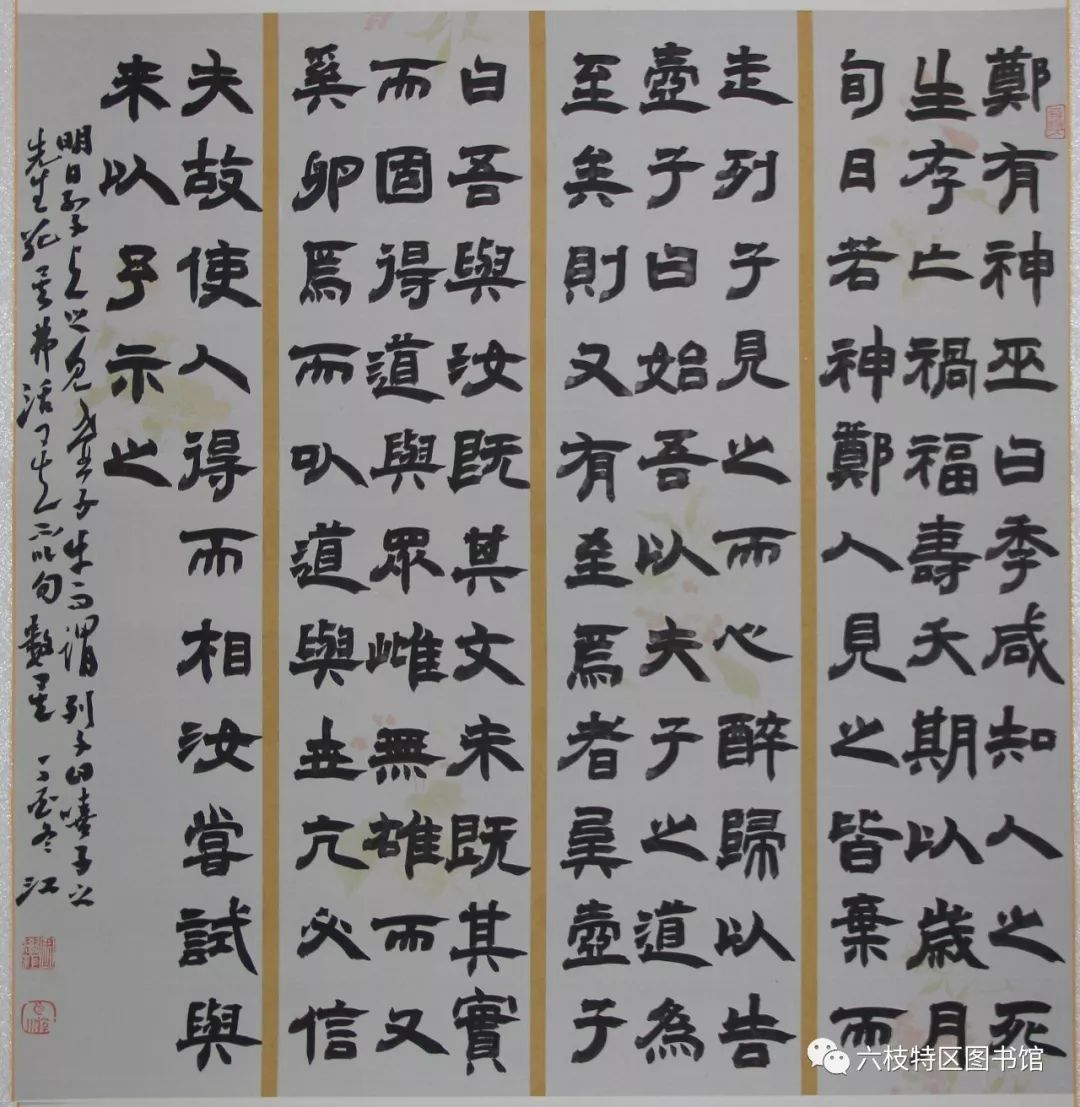 鄭有神巫曰季咸知人之死
生存亡禍福壽夭期以歲月
旬日若神鄭人見之皆棄而
走列子見之而心醉歸以告
壺子曰始吾以夫子之道為
至矣則又有至焉者矣壺子
曰吾與汝既其文未既其實
而固得道與眾雌無雄而又
奚卵焉而以道與世亢必信
夫故使人得而相汝嘗試與
来以予示之
明日列子與之見壺子出而謂列子曰嘻子之
先生死矣弗活
六枝特区图书馆